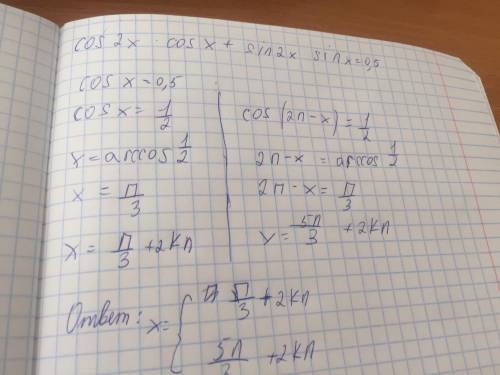 cos 2x · cos x + sin 2x sin x = 0,5
cos x = 0,5
cos x = 1/2
x = arccos 1/2
x = п/3
x = п/3 + 2kп
cos (2п - x) = 1/2
2п - x = arccos 1/2
2п - x = п/3
x = 5п/3 + 2kп
Ответ: x = { п/3 + 2kп
5п/3 + 2kп